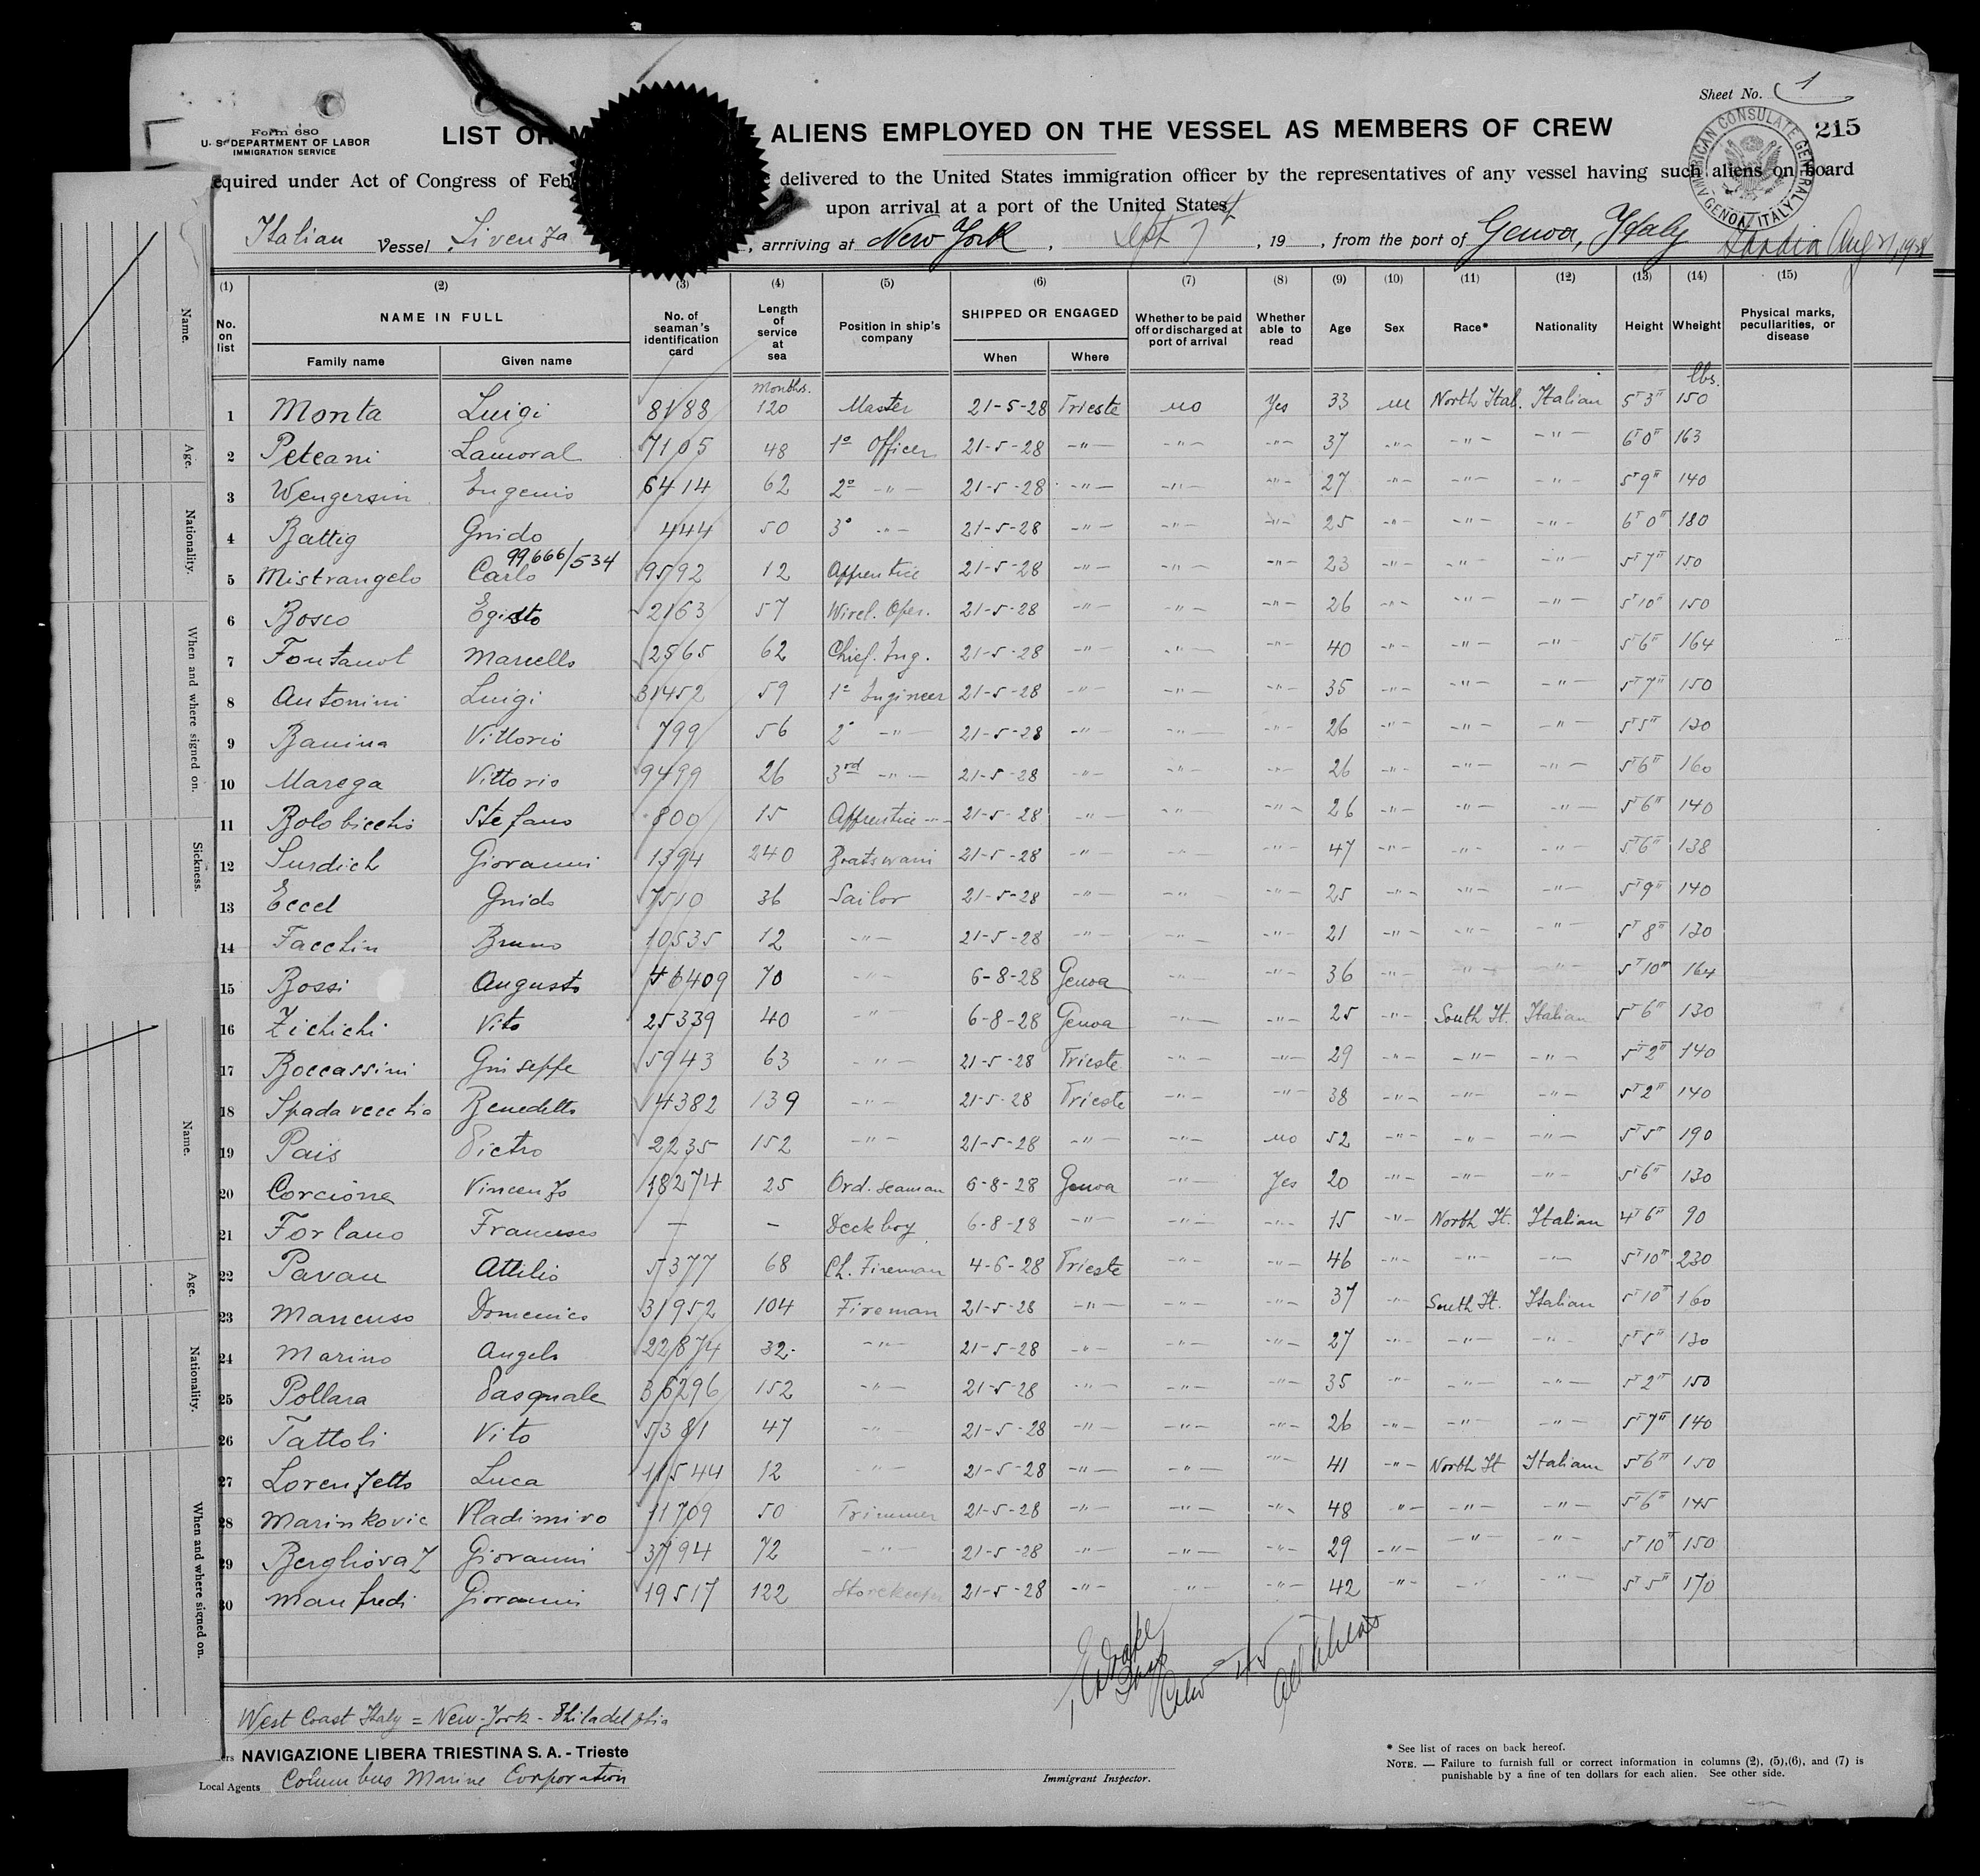 Sheet No. 1
Form 680
U. S. DEPARTMENT OF LABOR
IMMIGRATION SERVICE
LIST OR ALIENS EMPLOYED ON THE VESSEL AS MEMBERS OF CREW
215
AMERICAN CONSULATE GENERAL GENOA, ITALY
equired under Act of Congress of Feb delivered to the United States immigration officer by the representatives of any vessel having such aliens on board
upon arrival at a port of the United States
Italian Vessel Livenza , arrriving at New York , Sept 7th , 19 , from the port of Genoa, Italy Aug 21, 1928
(1) (2) (3) (4) (5) (6) (7) (8) (9) (10) (11) (12) (13) (14) (15)
No. on list NAME IN FULL Family name Given name No. of seaman's identification card Length of service at sea Position in ship's company SHIPPED OR ENGAGED When Where Whether to be paid off or discharged at port of arrival Whether able to read Age Sex Race* Nationality Height Wheight Physical marks, peculiarities, or disease
months. lbs.
1 Monta Luigi 8188 120 Master 21-5-28 Trieste no Yes 33 m North Ital. Italian 5'3" 150
2 Peteani Lamoral 7105 48 1º Officer 21-5-28 -"- -"- -"- 37 -"- -"- -"- 6'0" 163
3 Wengersin Eugenio 6414 62 2º -"- 21-5-28 -"- -"- -"- 27 -"- -"- -"- 5'9" 140
4 Battig Guido 444 50 3º -"- 21-5-28 -"- -"- -"- 25 -"- -"- -"- 6'0" 180
99666/534
5 Mistrangelo Carlo 9592 12 Apprentice 21-5-28 -"- -"- -"- 23 -"- -"- -"- 5'7" 150
6 Bosco Egisto 2163 57 Wirel. Oper. 21-5-28 -"- -"- -"- 26 -"- -"- -"- 5'10" 150
7 Fontanot Marcello 2565 62 Chief. Ing. 21-5-28 -"- -"- -"- 40 -"- -"- -"- 5'6" 164
8 Antonini Luigi 31452 59 1º Engineer 21-5-28 -"- -"- -"- 35 -"- -"- -"- 5'7" 150
9 Banina Vittorio 799 56 2º -"- 21-5-28 -"- -"- -"- 26 -"- -"- -"- 5'5" 130
10 Marega Vittorio 9499 26 3rd -"- 21-5-28 -"- -"- -"- 26 -"- -"- -"- 5'6" 160
11 Bolobicchio Stefano 800 15 Apprentice -"- 21-5-28 -"- -"- -"- 26 -"- -"- -"- 5'6" 140
12 Surdich Giovanni 1394 240 Boatswain 21-5-28 -"- -"- -"- 47 -"- -"- -"- 5'6" 138
13 Eccel Guido 7510 36 Sailor 21-5-28 -"- -"- -"- 25 -"- -"- -"- 5'9" 140
14 Facchin Bruno 10535 12 -"- 21-5-28 -"- -"- -"- 21 -"- -"- -"- 5'8" 130
15 Bossi Augusto 46409 70 -"- 6-8-28 Genoa -"- -"- 36 -"- -"- -"- 5'10" 164
16 Zichichi Vito 25339 40 -"- 6-8-28 Genoa -"- -"- 25 -"- South It. Italian 5'6" 130
17 Boccassini Giuseppe 5943 63 -"- 21-5-28 Trieste -"- -"- 29 -"- -"- -"- 5'2" 140
18 Spadavecchia Benedetto 4382 139 -"- 21-5-28 Trieste -"- -"- 38 -"- -"- -"- 5'2" 140
19 Pais Pietro 2235 152 -"- 21-5-28 -"- -"- no 52 -"- -"- -"- 5'5" 190
20 Corcione Vincenzo 18274 25 Ord. Seaman 6-8-28 Genoa -"- Yes 20 -"- -"- -"- 5'6" 130
21 Forlano Francesco — — Deck boy 6-8-28 -"- -"- -"- 15 -"- North It. Italian 4'6" 90
22 Pavan Attilio 5377 68 Ch. Fireman 4-6-28 Trieste -"- -"- 46 -"- -"- -"- 5'10" 230
23 Mancuso Domenico 31952 104 Fireman 21-5-28 -"- -"- -"- 37 -"- South It. Italian 5'10" 160
24 Marino Angelo 22874 32 -"- 21-5-28 -"- -"- -"- 27 -"- -"- -"- 5'5" 130
25 Pollara Pasquale 36296 152 -"- 21-5-28 -"- -"- -"- 35 -"- -"- -"- 5'2" 150
26 Tattoli Vito 5381 47 -"- 21-5-28 -"- -"- -"- 26 -"- -"- -"- 5'7" 140
27 Lorenzetto Luca 11544 12 -"- 21-5-28 -"- -"- -"- 41 -"- North It Italian 5'6" 150
28 Marinkovic Vladimiro 11709 50 Trimmer 21-5-28 -"- -"- -"- 48 -"- -"- -"- 5'6" 145
29 Bergliovaz Giovanni 3794 72 -"- 21-5-28 -"- -"- -"- 29 -"- -"- -"- 5'10" 150
30 Manfredi Giovanni 19517 122 Storekeeper 21-5-28 -"- -"- -"- 42 -"- -"- -"- 5'5" 170
West Coast Italy = New-York - Philadelphia
ers NAVIGAZIONE LIBERA TRIESTINA S. A. - Trieste
Local Agents Columbus Marine Corporation
Immigrant Inspector.
* See list of races on back hereof.
NOTE. — Failure to furnish full or correct information in columns (2), (5),(6), and (7) is
punishable by a fine of ten dollars for each alien. See other side.
Name.
Age.
Nationality.
When and where signed on.
Sickness.
Name.
Age.
Nationality.
When and where signed on.